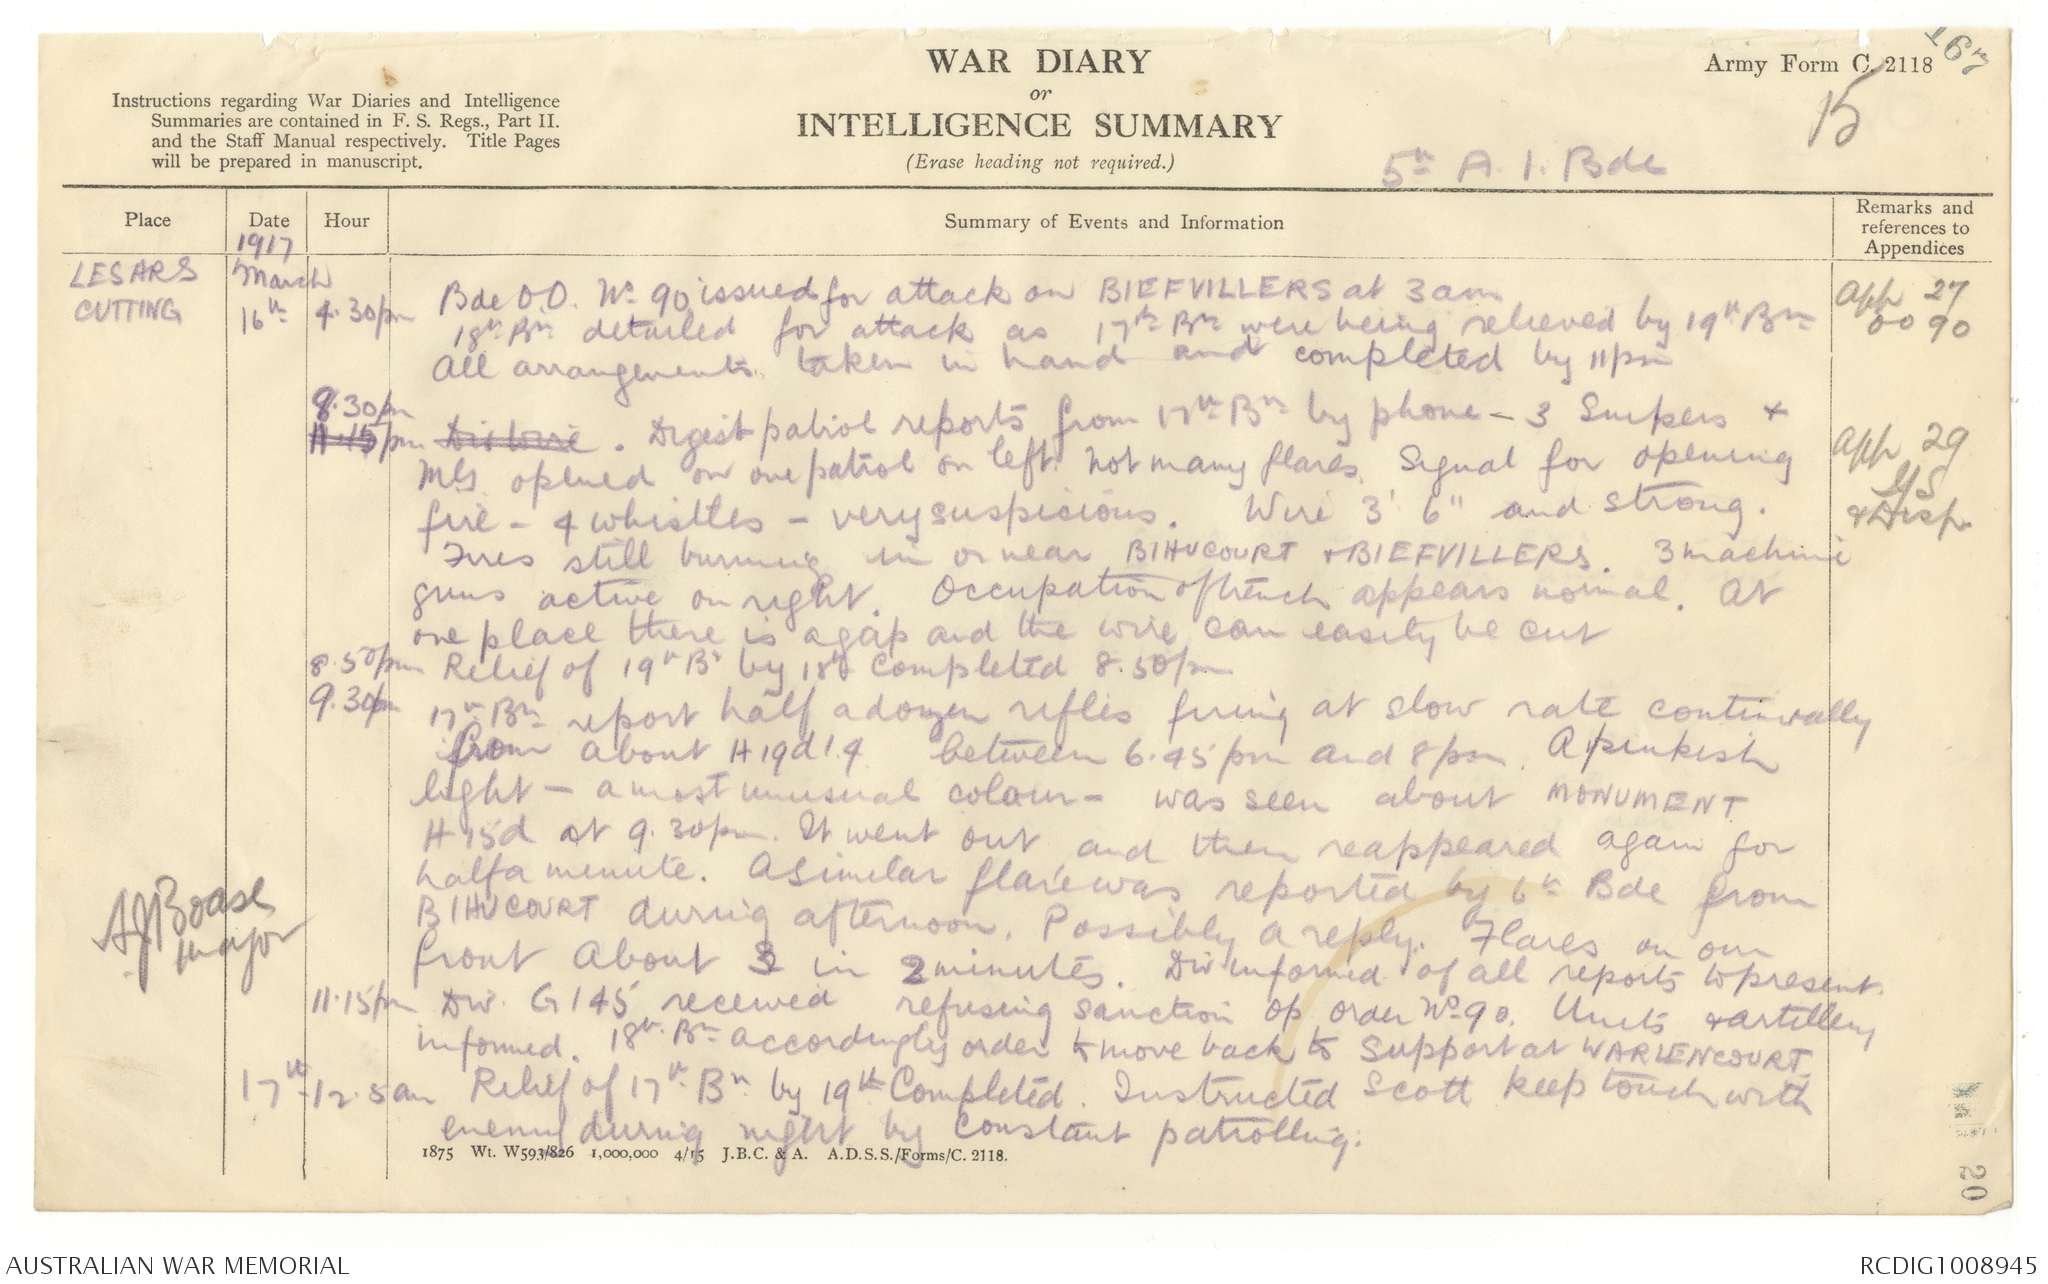 WAR DIARY
or
INTELLIGENCE SUMMARY
(Erase heading not required.)
Army Form C. 2118
15
Instructions regarding War Diaries and Intelligence
Summaries are contained in F. S. Regs., Part II.
and the Staff Manual respectively. Title Pages
will be prepared in manuscript.
5th A. I. Bde
Place
Date
Hour
Summary of Events and Information
Remarks and
references to
Appendices
1917
LESARS
CUTTING
March
16th 4.30pm Bde OO. No 90 issued for attack on BIEFVILLERS at 3am
App 27
OO 90
18th Bn detailed for attack as 17th Bn were being relieved by 19th Bn
All arrangements taken in hand and completed by 11pm
8.30pm
11.15pm . Digest patrol reports from 17th Bn by phone – 3 Snipers +
App 29
I/S
+ Disp.
MG opened on one patrol on left. Not many flares. Signal for opening
fire – 4 whistles – very suspicious. Wire 3' 6" and strong.
Fires still burning in or near BIHUCOURT + BIEFVILLERS. 3 machine
guns active on right. Occupation of trench appears normal. At
one place there is a gap and the wire can easily be cut
8.50pm Relief of 19th Bn by 18th Completed 8.50pm
9.30pm 17th Bn report half a dozen rifles firing at slow rate continually
from about H19d1.4 between 6.45pm and 8pm. A pinkish
light – a most unusual colour – was seen about MONUMENT
H15d at 9.30pm. It went out and then reappeared again for
half a minute. A similar flare was reported by 6th Bde from
BIHUCOURT during afternoon. Possibly a reply. Flares on our
front about 3 in 2 minutes. Div informed of all reports to present.
11.15pm Div. G145 received refusing sanction Op Order No 90. Units + artillery
informed. 18th Bn accordingly order to move back to Support at WARLENCOURT.
17th 12.5am Relief of 17th Bn by 19th Completed. Instructed Scott keep touch with
enemy during night by constant patrolling.
A J Boase
Major
1875 Wt. W593/826 1,000,000 4/15 J.B.C. & A. A.D.S.S./Forms/C. 2118.
20
AUSTRALIAN WAR MEMORIAL
RCDIG1008945